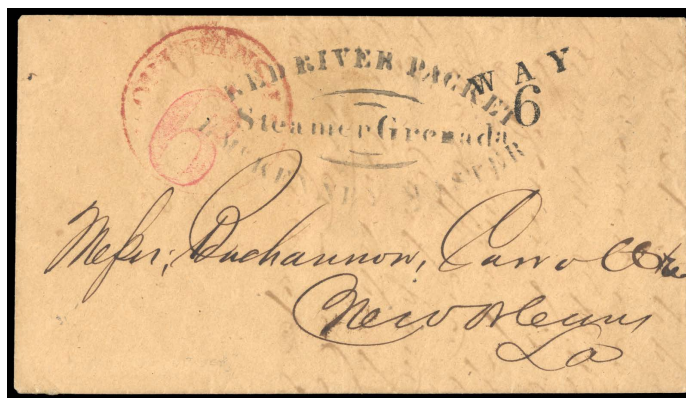 RED RIVER PACKET
WAY
6
Steamer Grenada
MASTER
6
Messrs, Buchannon, Carroll & Co
New Orleans
La